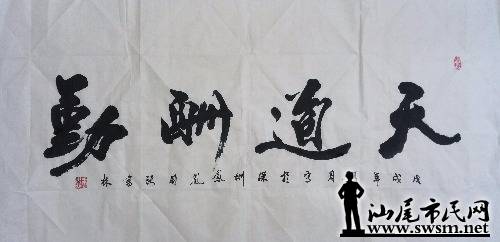 天道酬勤
戊戌年月写於深圳
汕尾市民网
www.swsm.net